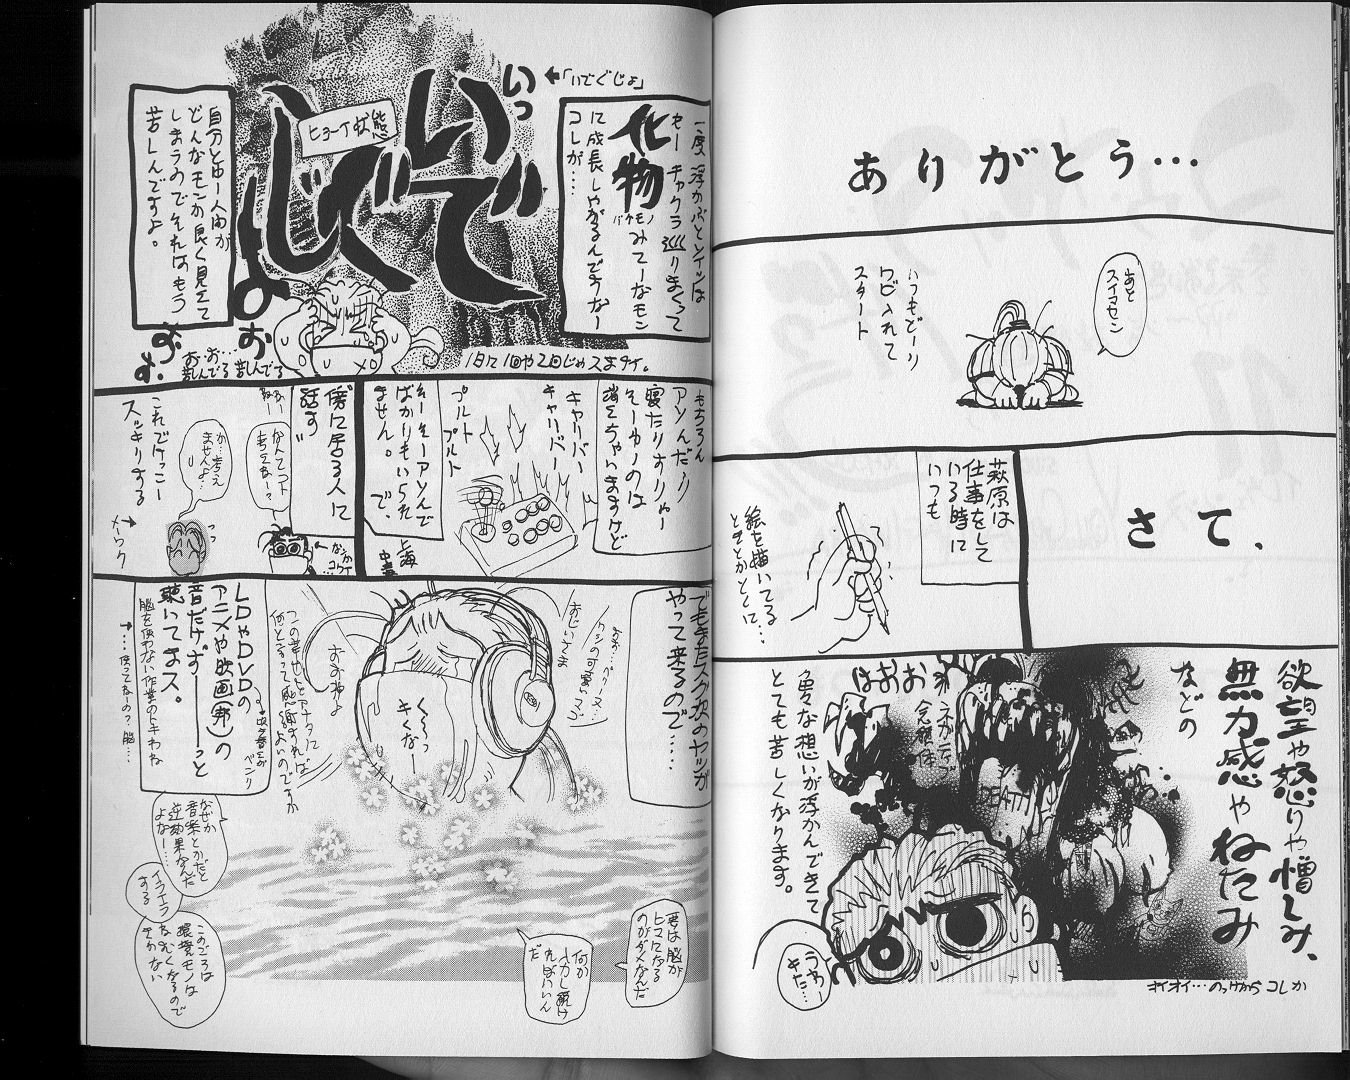 ありがとう…
あと
スイマセン
いつもどーり
ワビ入れて
スタート
さて、
萩原は
仕事をして
いる時に
いつも
絵を描いてる
ときとかとくに…
欲望や怒りや憎しみ、
無力感やねたみ
などの
ネガティブ
念願体
ほおお
DEATH
色々な想いが浮かんできて
とても苦しくなります。
うわー
きた…
オイオイ…のっけからコレか
一度浮かぶとソイツは
もーチャクラ巡りまくって
化物みてーなモン
バケモノ
に成長しやがるんですなー
コレが…
←「いでぐじょ」
いっ
いでぐじょ
ヒョーイ状態
自分とゆー人間が
どんなモンか良く見えて
しまうのでそれはもう
苦しんですよ。
お
お…お…
苦しんでる
苦しんでる
1日に1回や2回じゃスまナイ。
もちろん
アソんだり
寝たりすりゃー
そーゆーのは
消えちゃいますけど
キャリバー
キャリバー
プルト
プルト
そーそーアソんで
ばかりもいられ
ません。で、
傍に居る人に
話す
なんてコト
考えない?
か…考え
ませんよ…
これでけっこー
スッキリする
メーワク
でもまたスグ次のヤツが
やって来るので…
くーっ
きくなー
おじいさま
おおおよ
この幸せをアナタに
何と言って感謝すればよいのですか
LDやDVDの
アニメや映画(邦)の
音だけずーーーっと
聴いてまス。
脳を使わない作業のトキわね
→…使ってなーの?脳…
なぜか
音楽とかだと
逆効果なんだ
よなー…
イライラ
する
このごろは
環境モノは
ねむくなるので
きかない
要は脳が
ヒマになる
のがダメなんだ
何か
入力し続け
ればいいん
だ